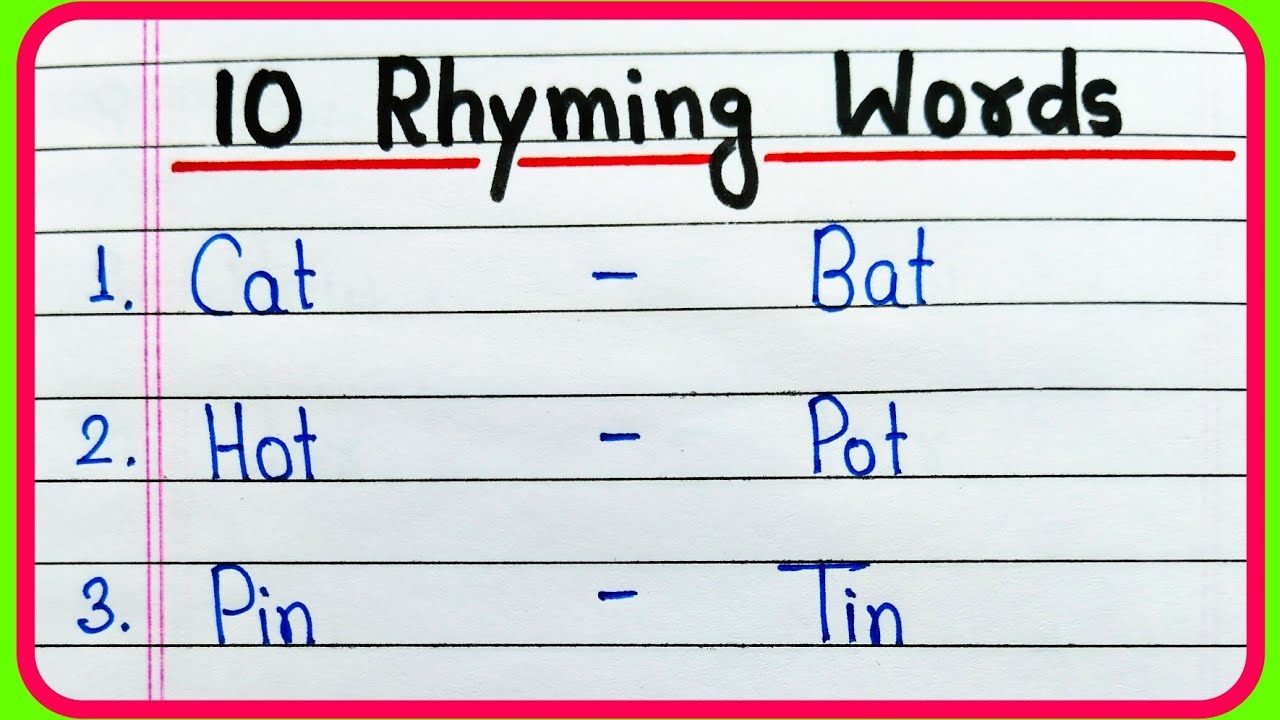 10 Rhyming Words
1. Cat - Bat
2. Hot - Pot
3. Pin - Tin